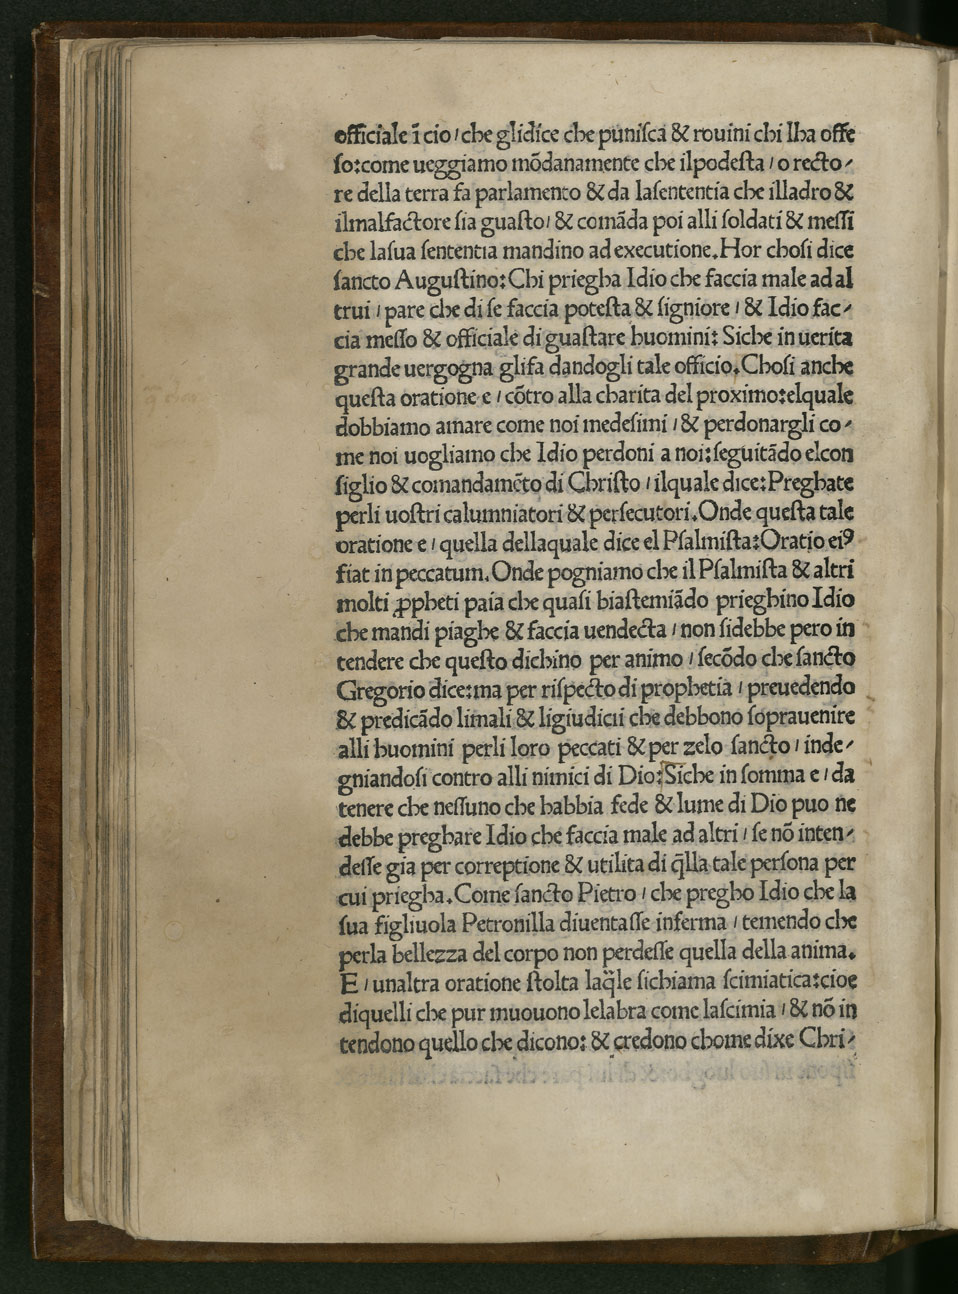 officiale ī cio / che glidice che puniſca & rouini chi lha offe
ſo: come ueggiamo mōdanamente che ilpodeſta / o recto-
re della terra fa parlamento & da laſententia che illadro &
ilmalfactore ſia guaſto / & comāda poi alli ſoldati & meſſi
che laſua ſententia mandino ad executione. Hor choſi dice
ſancto Auguſtino: Chi priegha Idio che faccia male ad al
trui / pare che di ſe faccia poteſta & ſigniore / & Idio fac-
cia meſſo & officiale di guaſtare huomini: Siche in uerita
grande uergogna glifa dandogli tale officio. Choſi anche
queſta oratione e / cōtro alla charita del proximo: elquale
dobbiamo amare come noi medeſimi / & perdonargli co-
me noi uogliamo che Idio perdoni a noi: ſeguitādo elcon
ſiglio & comandamēto di Chriſto / ilquale dice: Preghate
perli uoſtri calumniatori & perſecutori. Onde queſta tale
oratione e / quella dellaquale dice el Pſalmiſta: Oratio eiꝰ
fiat in peccatum. Onde pogniamo che il Pſalmiſta & altri
molti ꝓpheti paia che quaſi biaſtemiādo prieghino Idio
che mandi piaghe & faccia uendecta / non ſidebbe pero in
tendere che queſto dichino per animo / ſecōdo che ſancto
Gregorio dice: ma per riſpecto di prophetia / preuedendo
& predicādo limali & ligiudicii che debbono ſoprauenire
alli huomini perli loro peccati & per zelo ſancto / inde-
gniandoſi contro alli nimici di Dio: Siche in ſomma e / da
tenere che neſſuno che habbia fede & lume di Dio puo ne
debbe preghare Idio che faccia male ad altri / ſe nō inten-
deſſe gia per correptione & utilita di q̄lla tale perſona per
cui priegha. Come ſancto Pietro / che pregho Idio che la
ſua figliuola Petronilla diuentaſſe inferma / temendo che
perla bellezza del corpo non perdeſſe quella della anima.
E / unaltra oratione ſtolta laq̄le ſichiama ſcimiatica: cioe
diquelli che pur muouono lelabra come laſcimia / & nō in
tendono quello che dicono: & credono chome dixe Chri-